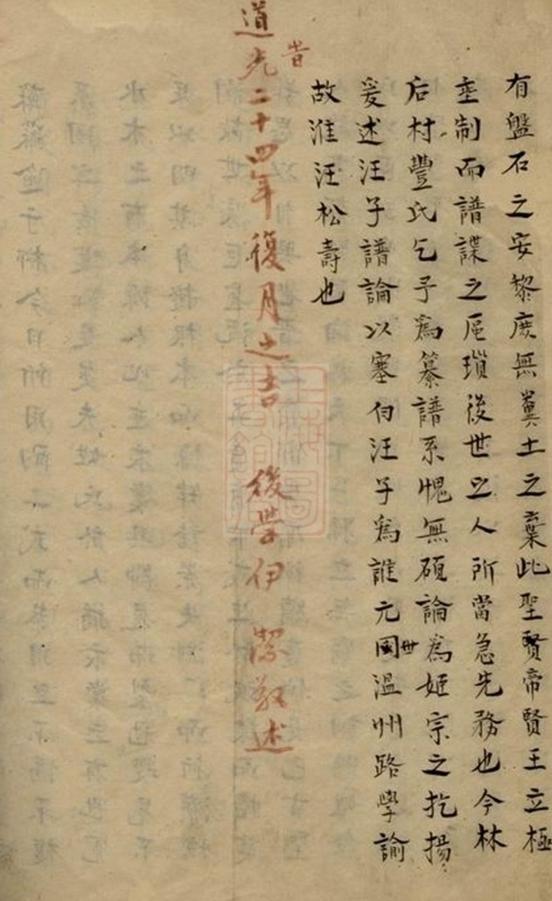 有盤石之安黎庶無糞土之棄此聖賢帝賢王立極
垂制而譜諜之Please瑣後世之人所當急先務也今林
后村豐氏乞予為纂譜系愧無碩論為姬宗之扢揚
爰述汪子譜論以塞白汪子為誰元國世溫州路學諭
故淮汪松壽也
旹
道光二十四年復月之吉 後學伊 敬述